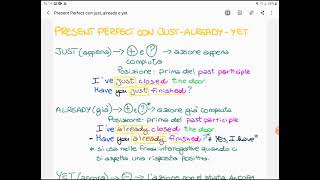 Present Perfect con just, already e yet
PRESENT PERFECT CON JUST-ALREADY-YET
JUST (appena) → + e ? → azione appena
compiuta
Posizione: prima del past participle
I've just closed the door.
Have you just finished?
ALREADY (già) → + e ?* → azione già compiuta
Posizione: prima del past participle
I've already closed the door
* Have you already finished? * Yes, I have*
* si usa nelle frasi interrogative quando ci
si aspetta una risposta positiva.
YET (ancora) → - → l'azione non è stata ancora